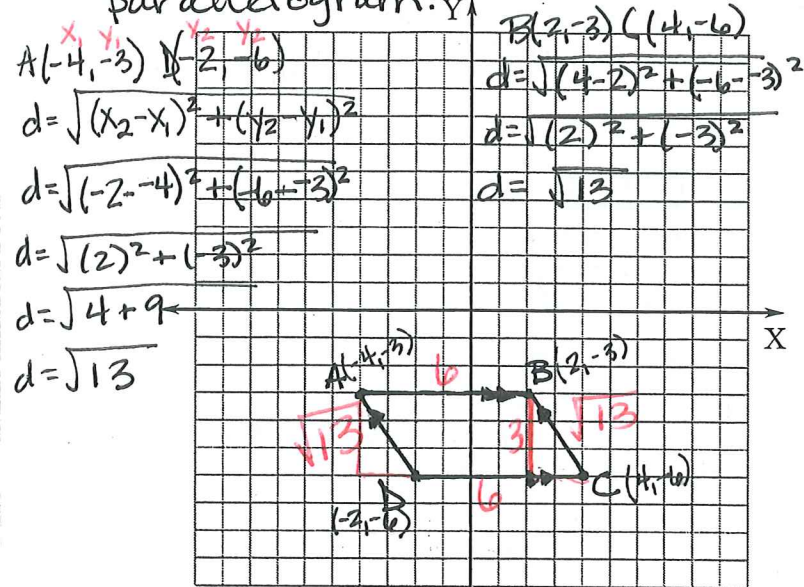 parallelogram.
Y
x₁ y₁ x₂ y₂
A(-4,-3) D(-2,-6)
d=√(x₂-x₁)²+(y₂-y₁)²
d=√(-2--4)²+(-6--3)²
d=√(2)²+(-3)²
d=√4+9
d=√13
B(2,-3) C(4,-6)
d=√(4-2)²+(-6--3)²
d=√(2)²+(-3)²
d=√13
X
A(-4,-3)
6
B(2,-3)
√13
3
√13
D
(-2,-6)
6
C(4,-6)